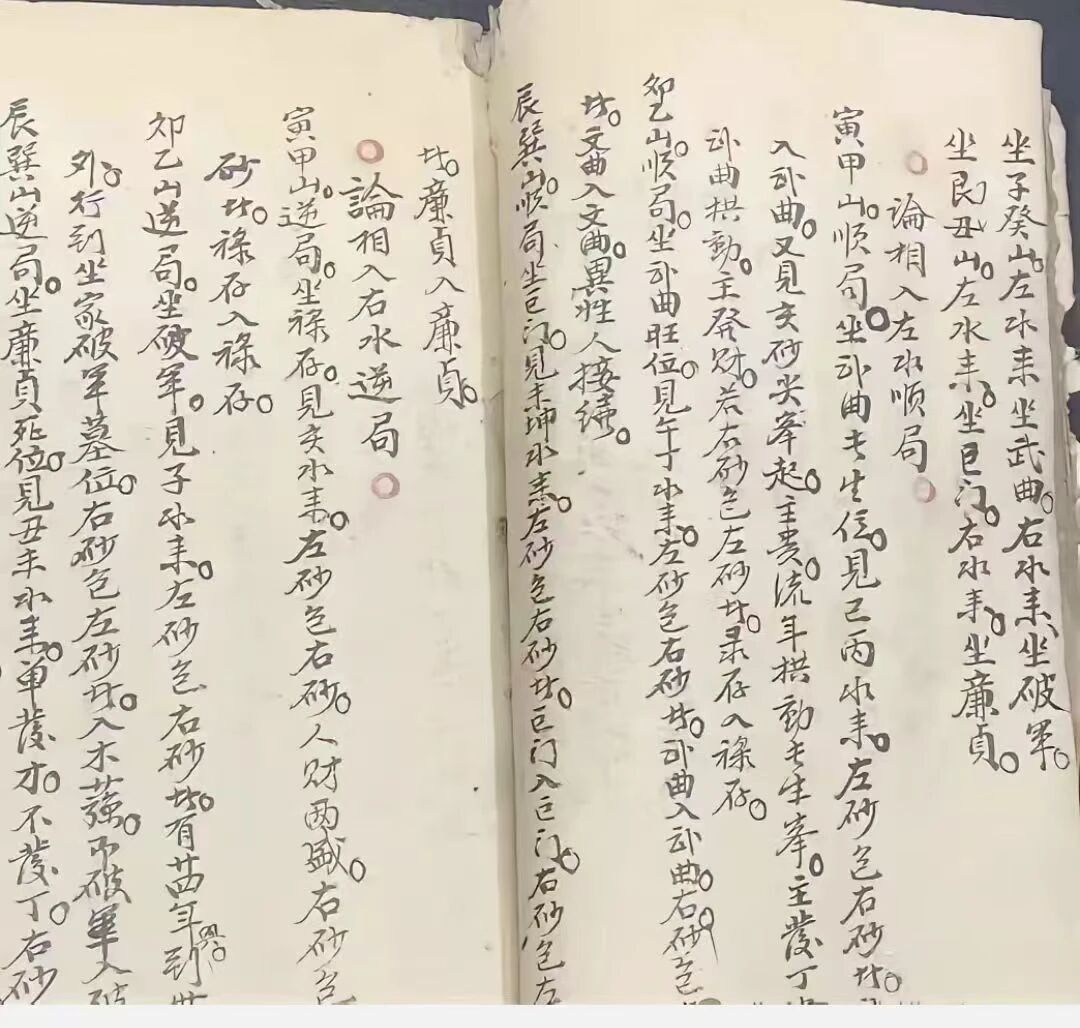 坐子癸山。左水耒坐武曲。右水耒坐破军。
坐艮丑山。左水耒。坐巨门。右水耒。坐廉貞。
論相入左水順局
寅甲山。順局。坐卦曲长生位。見巳丙水耒。左砂包右砂
入卦曲。又見亥砂尖峯起。主贵。流年拱動长生峯。主發丁
卦曲拱動。主発财。若右砂包左砂。录存入祿存。
卯乙山。順局。坐卦曲旺位。見午丁水耒。左砂包右砂。卦曲入卦曲。右砂包
文曲入文曲。異性人接續。
辰巽山。順局坐巨门。見未坤水耒。左砂包右砂。巨门入巨门。右砂包左
廉貞入廉貞。
論相入右水逆局
寅甲山。逆局。坐祿存。見亥水耒。左砂包右砂。人财两盛。右砂包
砂。祿存入祿存。
卯乙山逆局。坐破军。見子水耒。左砂包右砂。有廿四年到
外。行到坐家破军墓位。右砂包左砂。入木。破軍入破
辰巽山逆局。坐廉貞死位。見丑未水耒。单發才。不發丁。右砂